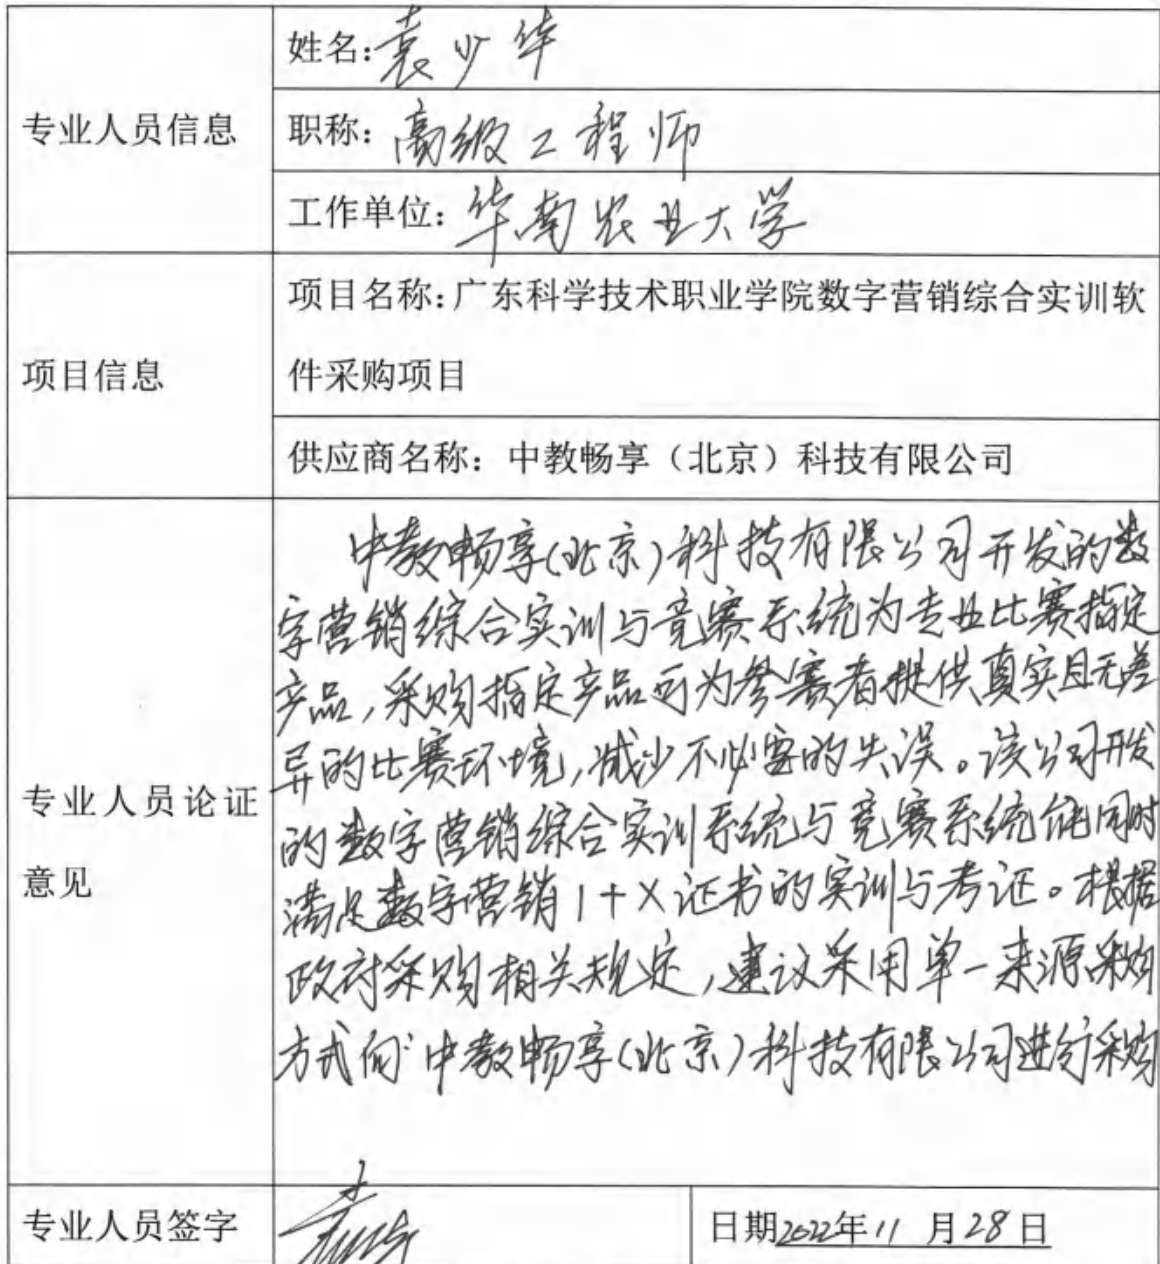 姓名:袁少华
专业人员信息
职称:高级工程师
工作单位:华南农业大学
项目名称:广东科学技术职业学院数字营销综合实训软
项目信息
件采购项目
供应商名称:中教畅享(北京)科技有限公司
中教畅享(北京)科技有限公司开发的数
字营销综合实训与竞赛系统为专业比赛指定
产品,采购指定产品可为参赛者提供真实且无差
异的比赛环境,减少不必要的失误。该公司开发
专业人员论证
的数字营销综合实训系统与竞赛系统能同时
意见
满足数字营销1+X证书的实训与考证。根据
政府采购相关规定,建议采用单一来源采购
方式向中教畅享(北京)科技有限公司进行采购
专业人员签字
日期2022年11月28日